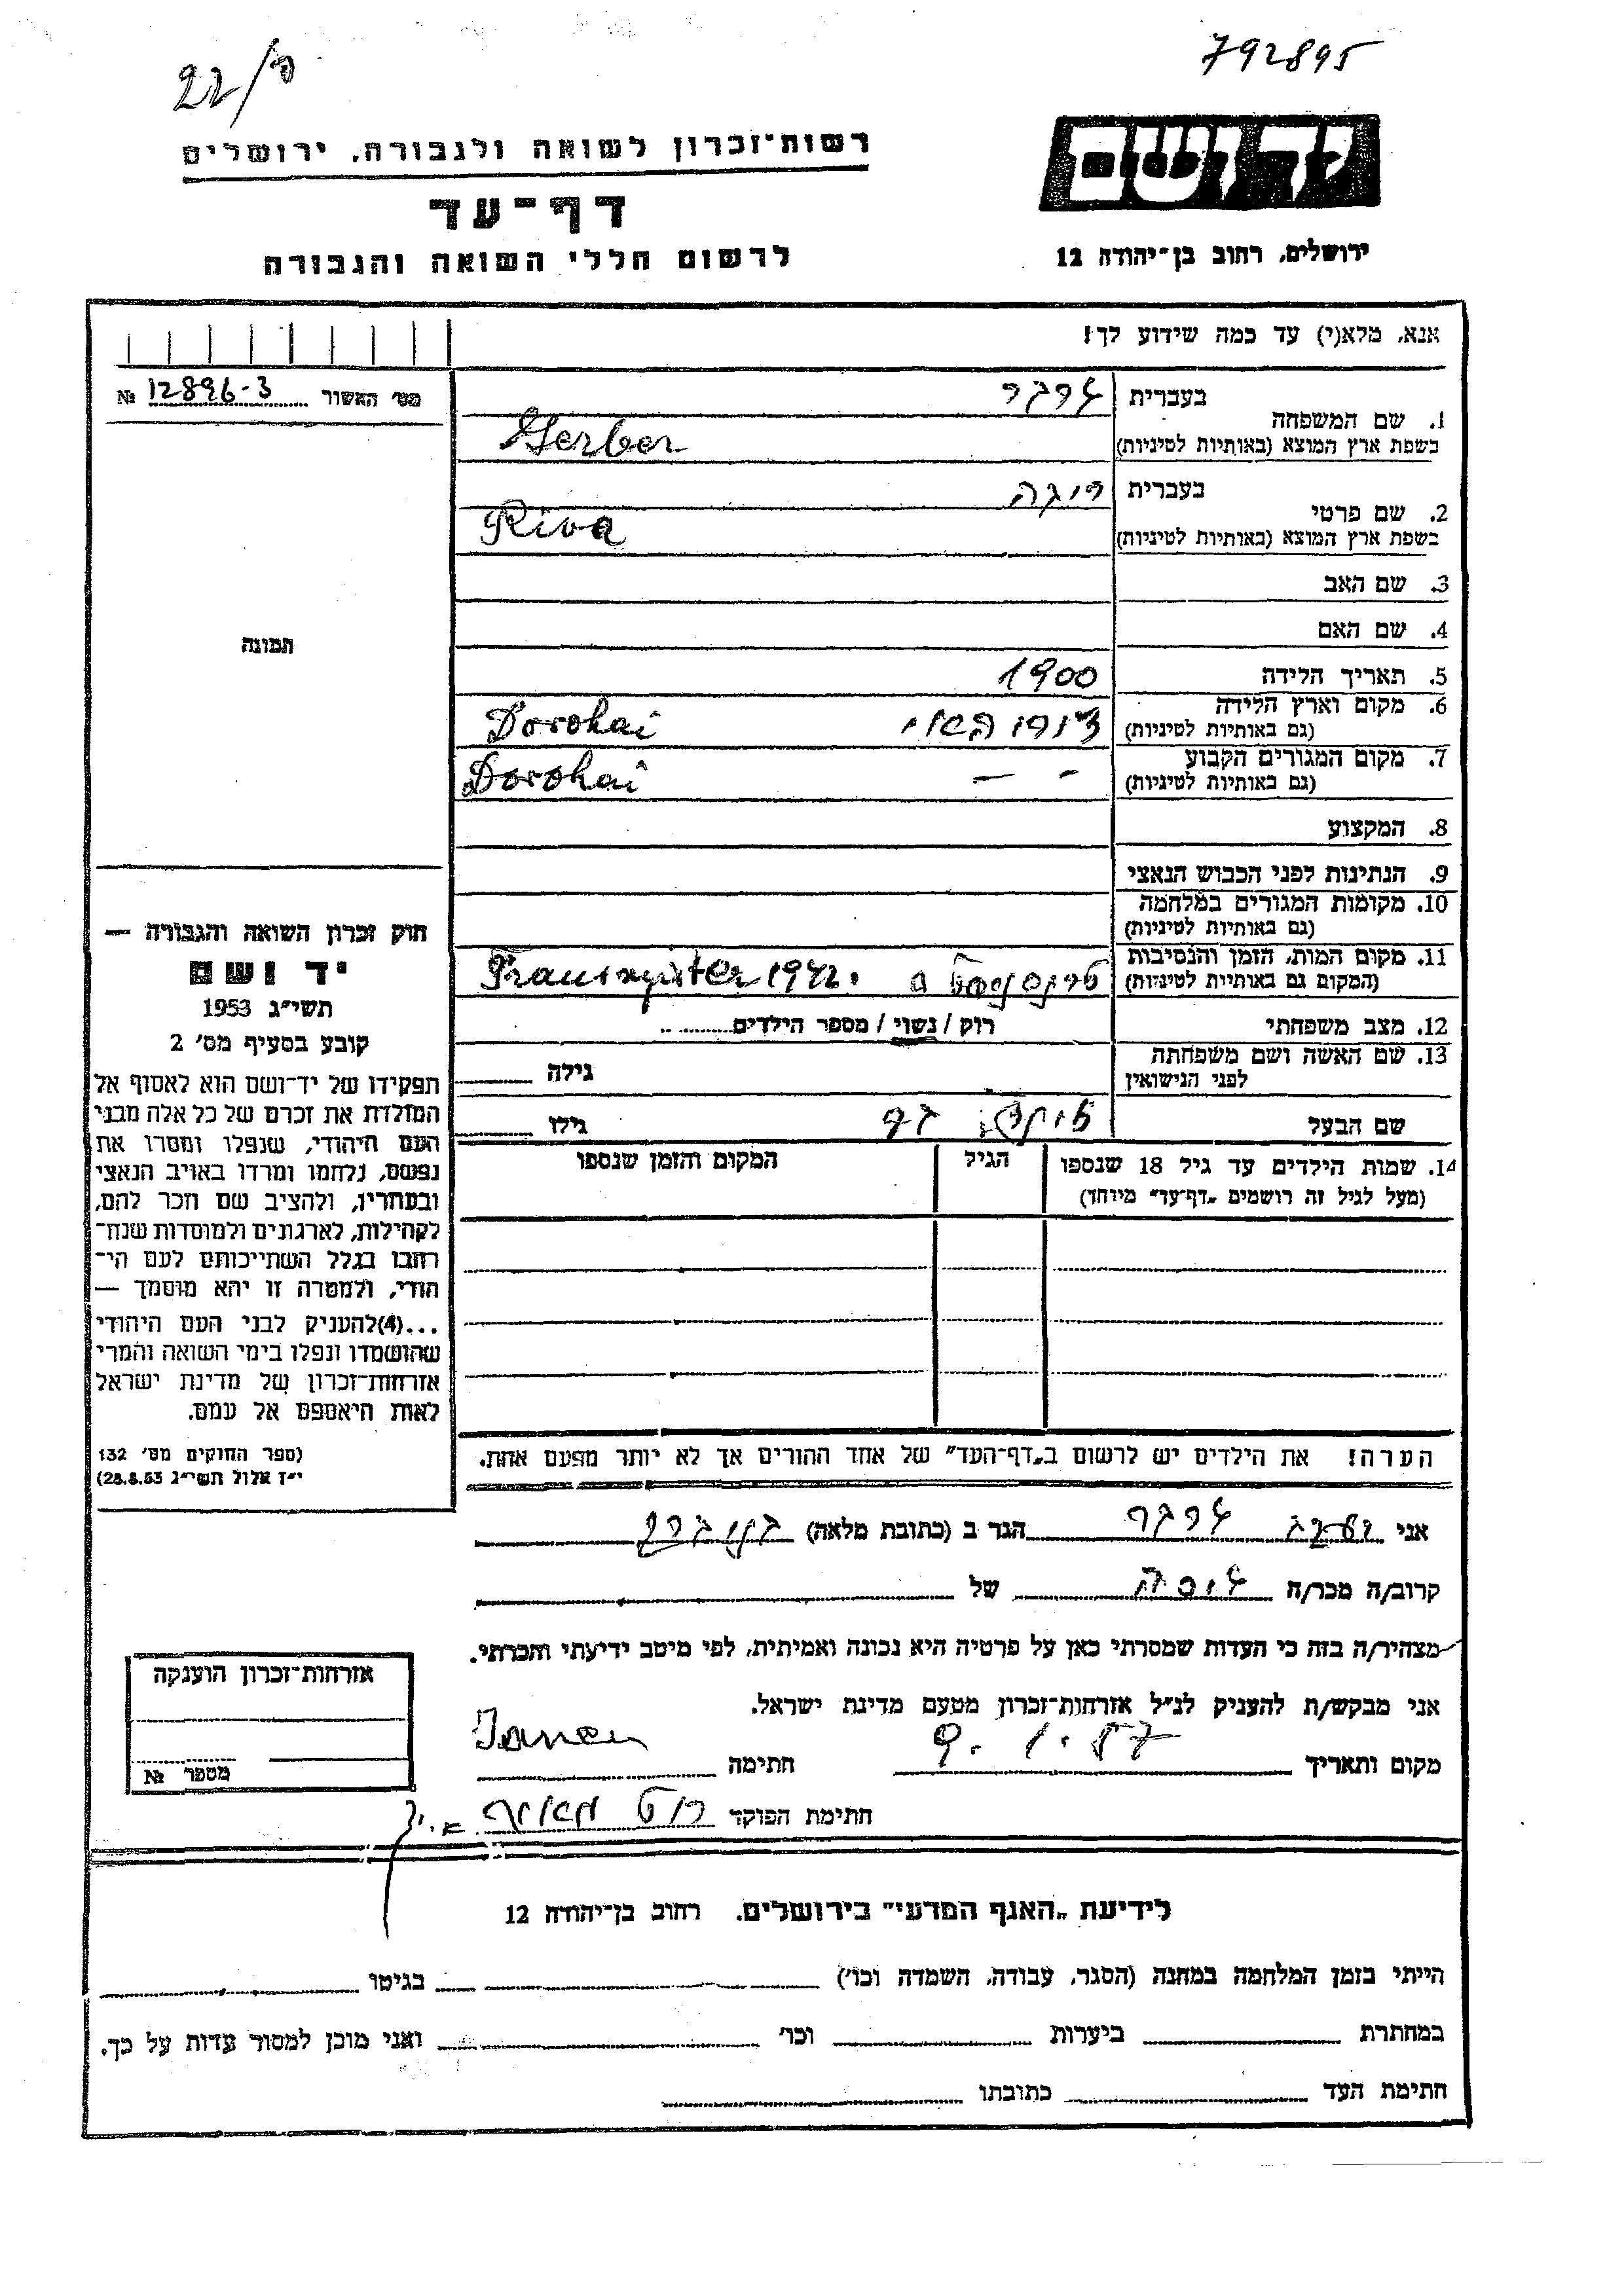 792895
22/ה
יד ושם
ירושלים, רחוב בן־יהודה 12
רשות־זכרון לשואה ולגבורה, ירושלים
דף־עד
לרשום חללי השואה והגבורה
אנא, מלא(י) עד כמה שידוע לך!
מס׳ האשור 12896-3 №
תמונה
1. שם המשפחה
בעברית גרבר
בשפת ארץ המוצא (באותיות לטיניות) Gerber
2. שם פרטי
בעברית ריבה
בשפת ארץ המוצא (באותיות לטיניות) Riva
3. שם האב
4. שם האם
5. תאריך הלידה 1900
6. מקום וארץ הלידה
(גם באותיות לטיניות) Dorohai
7. מקום המגורים הקבוע — -
(גם באותיות לטיניות) Dorohai
8. המקצוע
9. הנתינות לפני הכבוש הנאצי
10. מקומות המגורים במלחמה
(גם באותיות לטיניות)
11. מקום המות, הזמן והנסיבות
(המקום גם באותיות לטיניות) 1942.
12. מצב משפחתי רוק / נשוי / מספר הילדים
13. שם האשה ושם משפחתה
לפני הנישואין גילה
שם הבעל גילו
14. שמות הילדים עד גיל 18 שנספו
(מעל לגיל זה רושמים „דף־עד״ מיוחד)
הגיל
המקום והזמן שנספו
חוק זכרון השואה והגבורה —
יד ושם
תשי״ג 1953
קובע בסעיף מס׳ 2
תפקידו של יד־ושם הוא לאסוף אל
המולדת את זכרם של כל אלה מבני
העם היהודי, שנפלו ומסרו את
נפשם, נלחמו ומרדו באויב הנאצי
ובעוזריו, ולהציב שם וזכר להם,
לקהילות, לארגונים ולמוסדות שנח־
רבו בגלל השתייכותם לעם הי־
הודי, ולמטרה זו יהא מוסמך —
...(4)להעניק לבני העם היהודי
שהושמדו ונפלו בימי השואה והמרי
אזרחות־זכרון של מדינת ישראל
לאות היאספם אל עמם.
(ספר החוקים מס׳ 132
י״ז אלול תשי״ג 28.8.53)
הערה! את הילדים יש לרשום ב„דף־העד״ של אחד ההורים אך לא יותר מפעם אחת.
אני גרבר הגר ב (כתובת מלאה)
קרוב/ה מכר/ה גיסה של
מצהיר/ה בזה כי העדות שמסרתי כאן על פרטיה היא נכונה ואמיתית, לפי מיטב ידיעתי והכרתי.
אני מבקש/ת להעניק לנ״ל אזרחות־זכרון מטעם מדינת ישראל.
מקום ותאריך 9.1.57 חתימה
חתימת הפוקד
אזרחות־זכרון הוענקה
מספר №
לידיעת „האגף המדעי״ בירושלים, רחוב בן־יהודה 12
הייתי בזמן המלחמה במחנה (הסגר, עבודה, השמדה וכו׳) בגיטו
במחתרת ביערות וכו׳ ואני מוכן למסור עדות על כך.
חתימת העד כתובתו